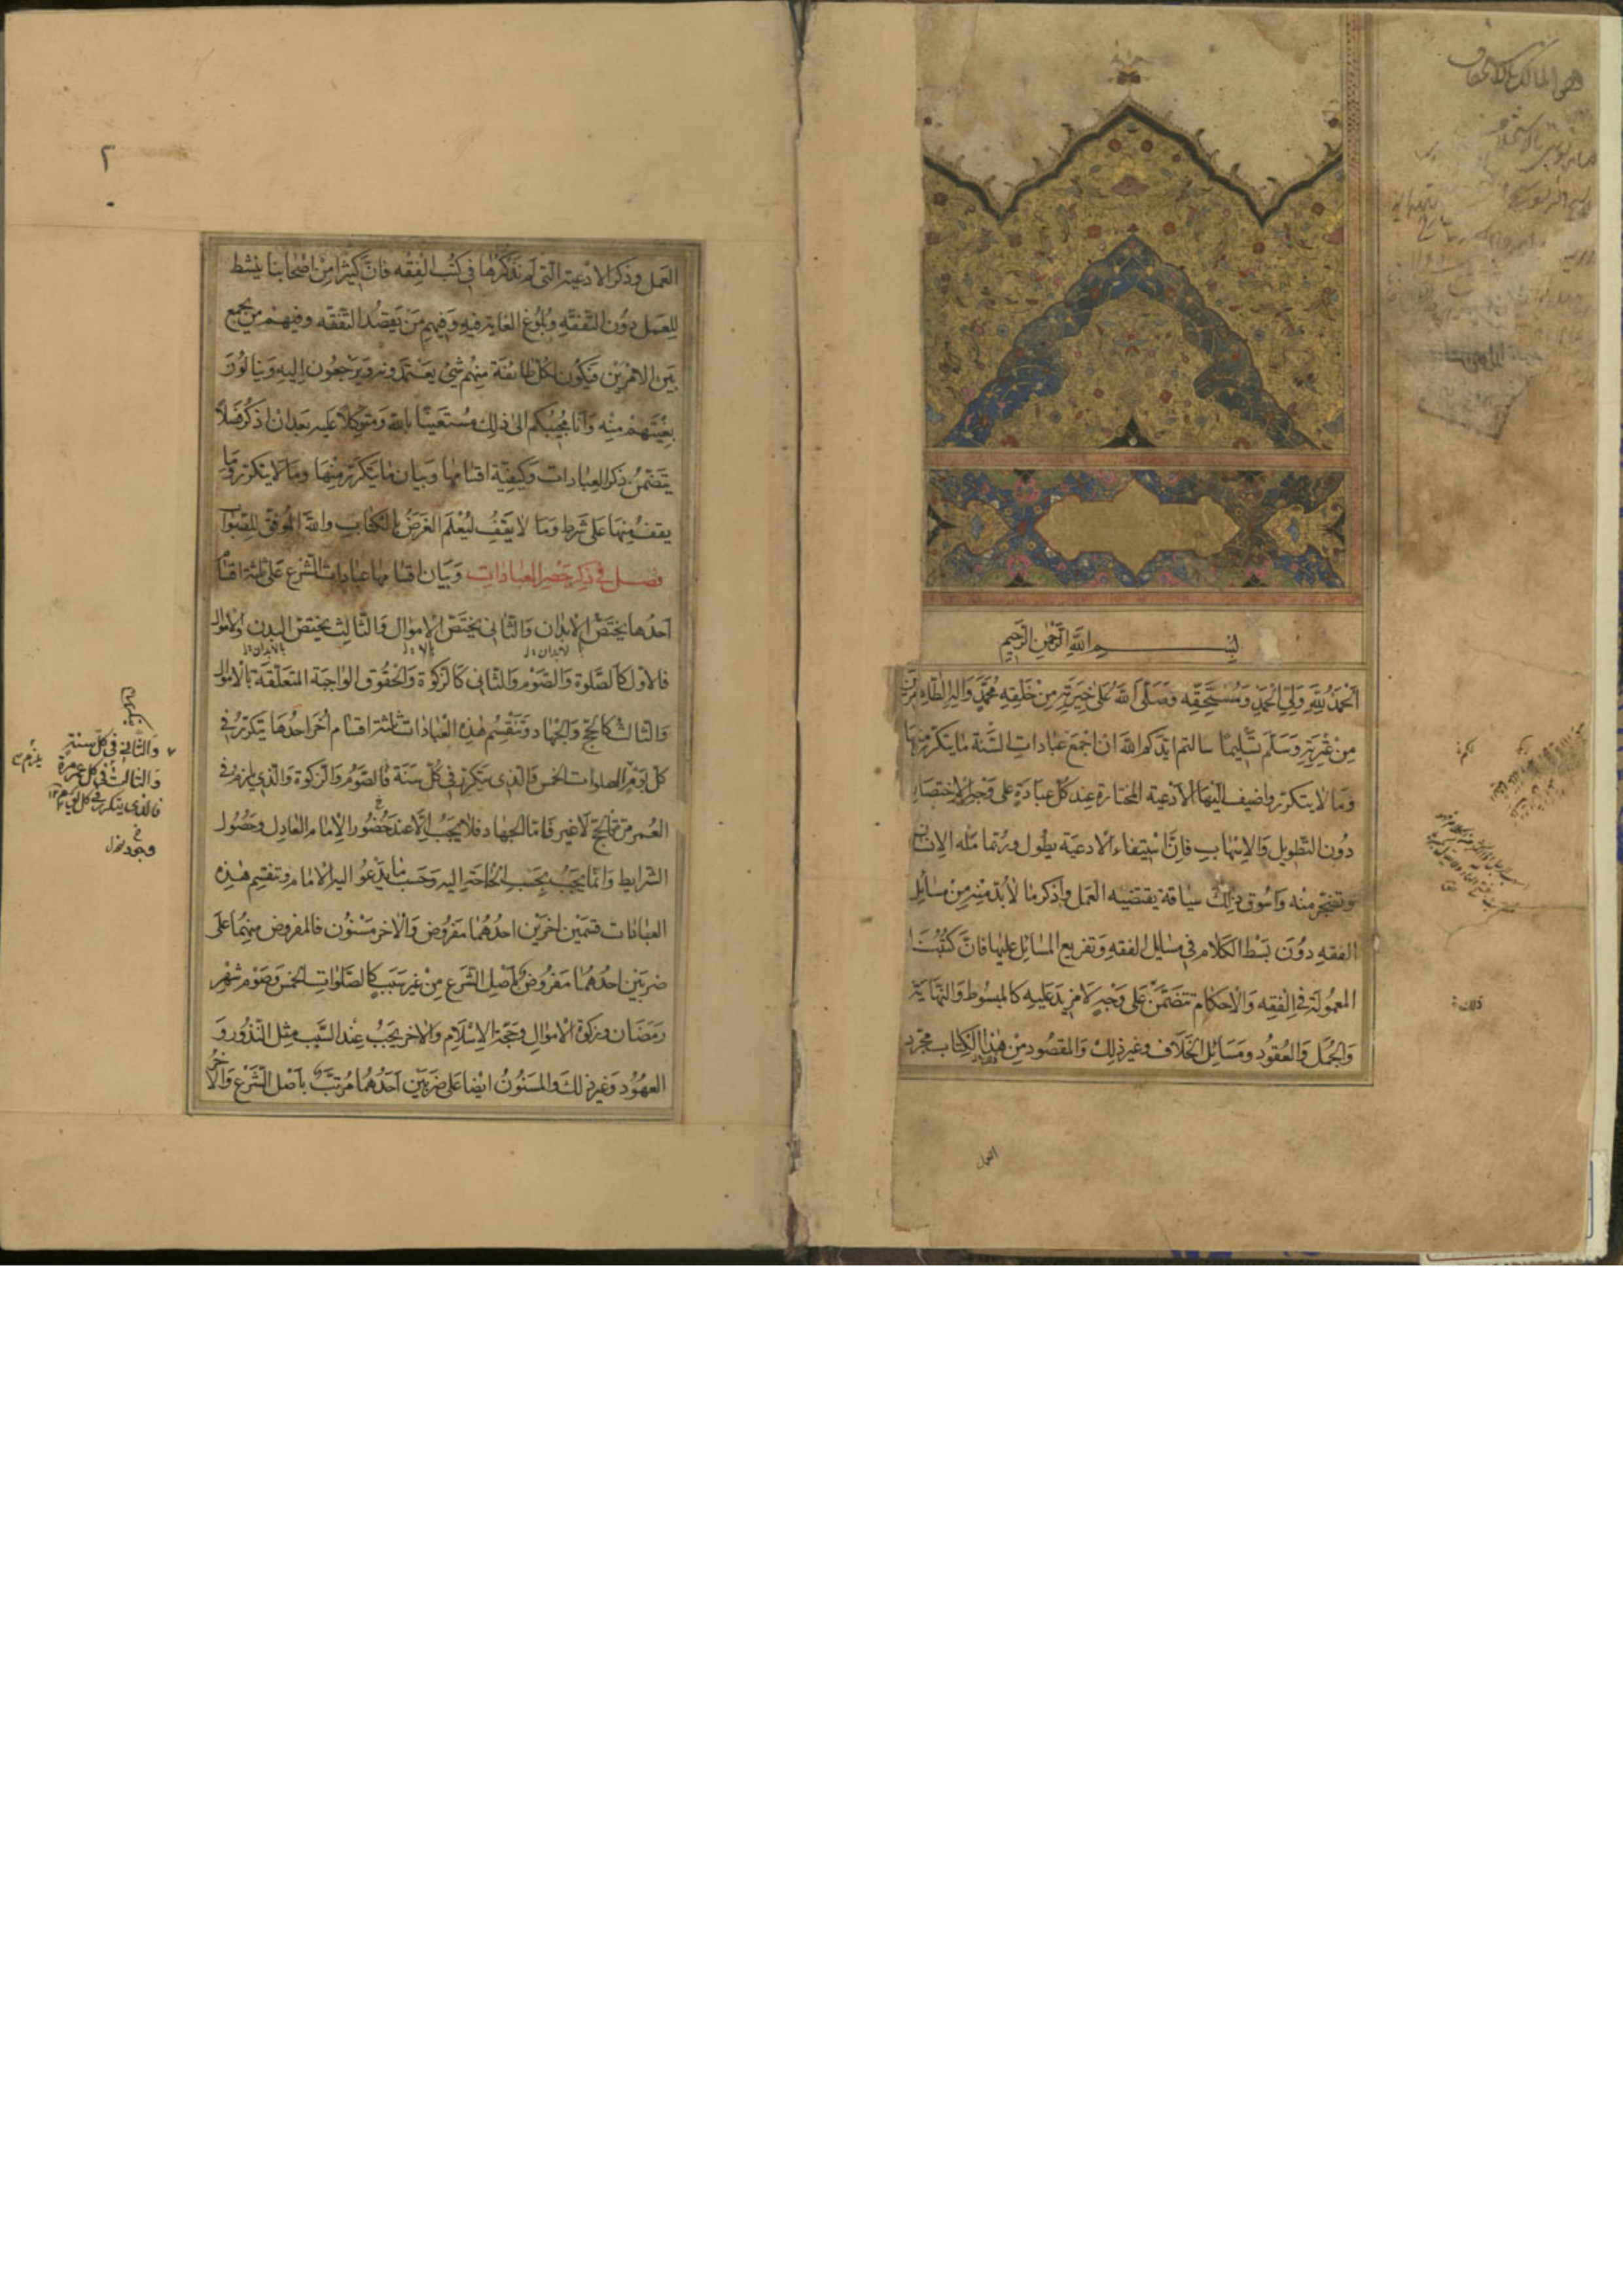 بسم الله الرحمن الرحيم
الحمد لله ولي الحمد ومستحقه وصلى الله على خيرته من خلقه محمد واله الطاهرين
من عترته وسلم تسليما سالتم ايدكم الله ان اجمع عبادات السنة ما يتكرر منها
وما لا يتكرر واضيف اليها الادعية المختارة عند كل عبادة على وجه الاختصار
دون التطويل والاسهاب فان استيفاء الادعية يطول وربما مله الانسان
وتضجر منه واسوق ذلك سياقة يقتضيه العمل واذكر ما لا بد منه من مسائل
الفقه دون بسط الكلام في مسايل الفقه وتفريع المسائل عليها فان كتبنا
المعمولة في الفقه والاحكام تتضمن على وجه لا مزيد عليه كالمبسوط والنهاية
والجمل والعقود ومسائل الخلاف وغير ذلك والمقصود من هذا الكتاب مجرد
العمل
٢
العمل وذكر الادعية التي لم نذكرها في كتب الفقه فان كثيرا من اصحابنا ينشط
للعمل دون التفقه وبلوغ الغاية فيه وفيهم من يقصد التفقه وفيهم من يجمع
بين الامرين فيكون لكل طائفة منهم شيء يعتمدونه ويرجعون اليه وينالون
بغيتهم منه وانا مجيبكم الى ذلك مستعينا بالله ومتوكلا عليه بعد ان اذكر فصلا
يتضمن ذكر العبادات وكيفية اقسامها وبيان ما يتكرر منها وما لا يتكرر وما
يقف منها على شرط وما لا يقف ليعلم الغرض بالكتاب والله الموفق للصواب
فصل في ذكر حصر العبادات وبيان اقسامها عبادات الشرع على ثلثة اقسام
احدها يختص الابدان والثاني يختص الاموال والثالث يختص البدن والاموال
فالاول كالصلوة والصوم والثاني كالزكوة والحقوق الواجبة المتعلقة بالاموال
والثالث كالحج والجهاد وتنقسم هذه العبادات ثلثة اقسام اخر احدها يتكرر في
كل يوم الصلوات الخمس والذي يتكرر في كل سنة فالصوم والزكوة والذي يلزم في
العمر مرة فالحج لا غير فاما الجهاد فلا يجب الا عند حضور الامام العادل وحصول
الشرايط وانما يجب بحسب الحاجة اليه وحسب ما يدعو اليه الامام وتنقسم هذه
العبادات قسمين اخرين احدهما مفروض والاخر مسنون فالمفروض منهما على
ضربين احدهما مفروض باصل الشرع من غير سبب كالصلوات الخمس وصوم شهر
رمضان وزكوة الاموال وحجة الاسلام والاخر يجب عند السبب مثل النذور و
العهود وغير ذلك والمسنون ايضا على ضربين احدهما مرتب باصل الشرع والاخر
والثاني في كل سنة
والثالث في كل عمره مرة
فالذي يتكرر في كل يوم